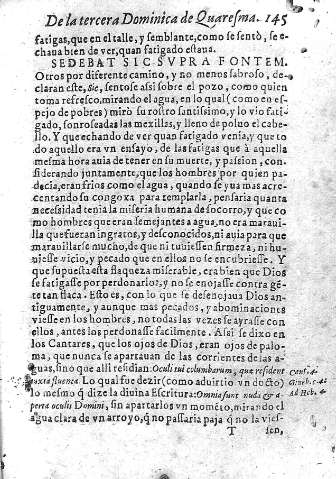 De la tercera Dominica de Quaresma. 145
fatigas, que en el talle, y semblante, como se sentò, se e-
chaua bien de ver, quan fatigado estaua.
SEDEBAT SIC SVPRA FONTEM.
Otros por diferente camino, y no menos sabroso, de-
claran este, Sic, sentose assi sobre el pozo, como quien
toma refresco, mirando el agua, en lo qual (como en es-
pejo de pobres) mirò su rostro santissimo, y lo vio fatiga-
do, sonroseadas las mexillas, y lleno de poluo el cabe-
llo. Y que echando de ver quan fatigado venia, y que to
do aquello era vn ensayo, de las fatigas que à aquella
mesma hora auia de tener en su muerte, y passion, con-
siderando juntamente, que los hombres por quien pa-
decia, eran frios como el agua, quando se yua mas acre-
centando su congoxa para templarla, pensaria quanta
necessidad tenia la miseria humana de socorro, y que co
mo hombres que eran semejantes a agua, no era maraui-
lla que fueran ingratos, y desconocidos, ni auia para que
marauillarse mucho, de que ni tuuiessen firmeza, ni hu-
uiesse vicio, y pecado que en ellos no se encubriesse. Y
que supuesta esta flaqueza miserable, era bien que Dios
se fatigasse por perdonarlo, y no se enojasse contra gẽ-
te tan flaca. Esto es, con lo que se desenojaua Dios an-
tiguamente, y aunque mas pecados, y abominaciones
viesse en los hombres, no todas las vezes se ayrasse con
ellos, antes los perdonasse facilmente. Assi se dixo en
los Cantares, que los ojos de Dios, eran ojos de palo-
ma, que nunca se apartauan de las corrientes de las a-
guas, sino que alli residian: Oculi tui columbarum, que resident
iuxta fluenta. Lo qual fue dezir (como aduirtio vn docto)
lo mesmo q̃ dize la diuina Escritura: Omnia sunt nuda & a-
perta oculis Domini, sin apartarlos vn momẽto, mirando el
agua clara de vn arroyo, q̃ no passaria paja q̃ no la vies-
T sen,
Cant. 4.
Ad Heb. 4.